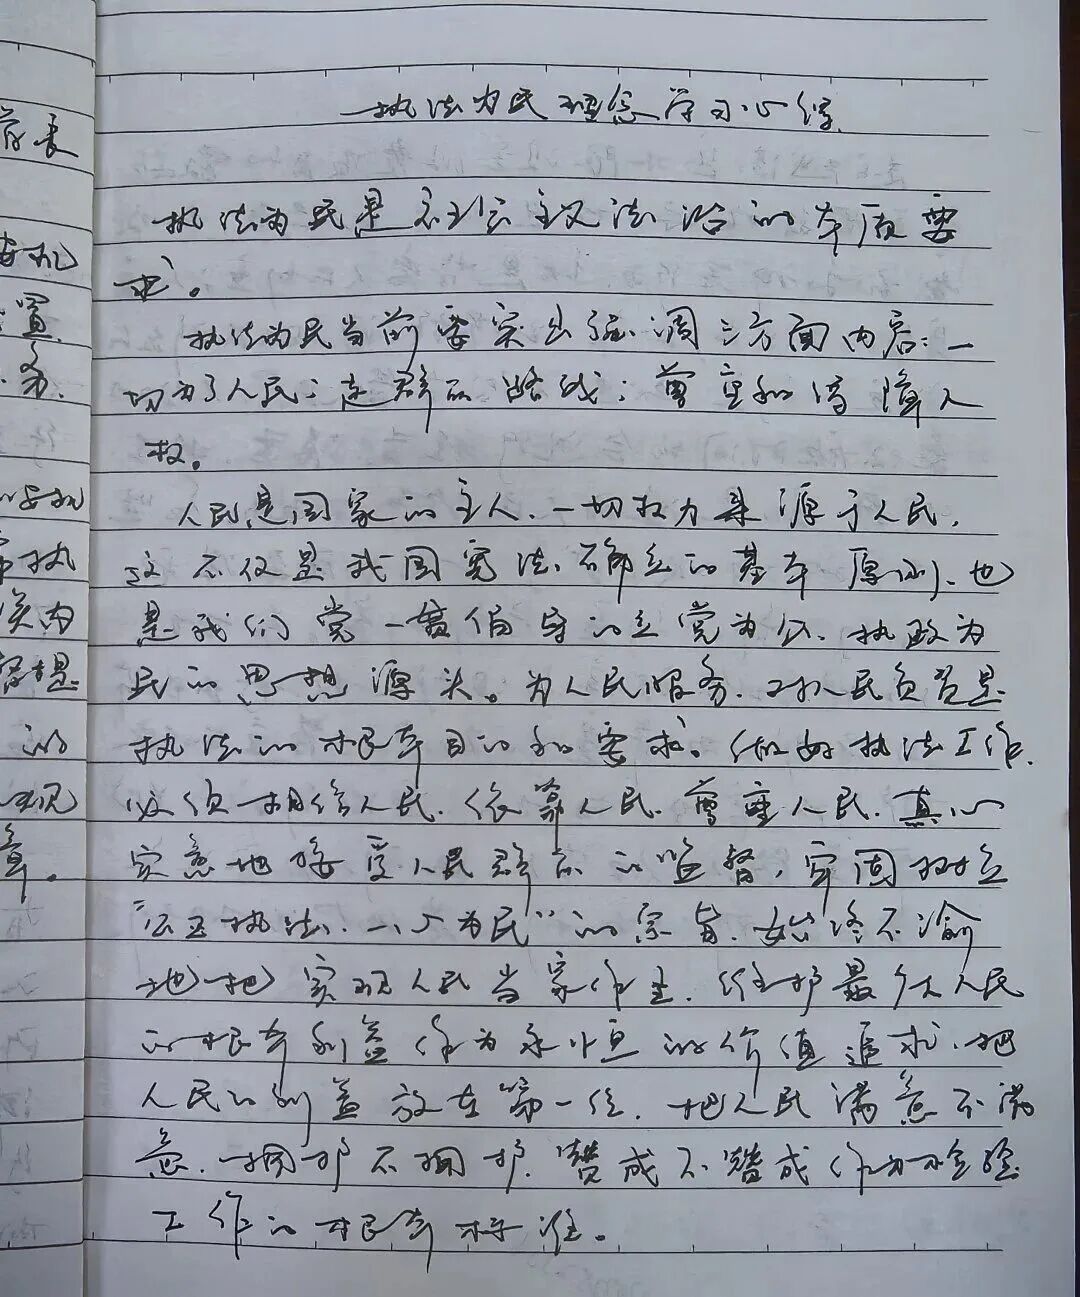 执法为民理念学习心得
执法为民是社会主义法治的本质要
求。
执法为民当前要突出强调三方面内容:一
切为了人民;走群众路线;尊重和保障人
权。
人民是国家的主人,一切权力来源于人民,
这不仅是我国宪法确立的基本原则,也
是我们党一贯倡导的立党为公、执政为
民的思想源头。为人民服务,对人民负责是
执法的根本目的和要求。做好执法工作,
必须相信人民、依靠人民、尊重人民,真心
实意地接受人民群众的监督,牢固树立
“公正执法、一心为民”的宗旨,始终不渝
地把实现人民当家作主,维护最广大人民
的根本利益作为永恒的价值追求,把
人民的利益放在第一位,把人民满意不满
意、拥护不拥护、赞成不赞成作为检验
工作的根本标准。